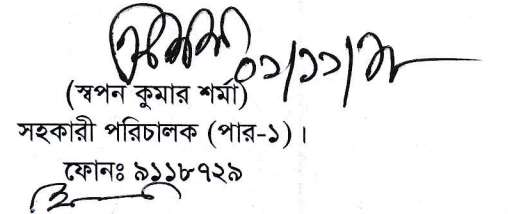 ০১/১১/
(স্বপন কুমার শর্মা)
সহকারী পরিচালক (পার-১)।
ফোনঃ ৯১১৮৭২৯